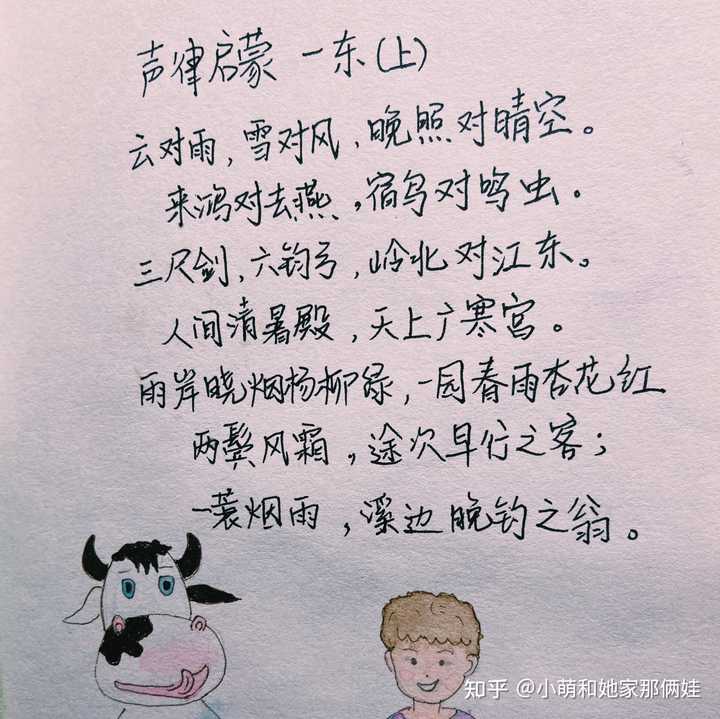 声律启蒙 一东(上)
云对雨，雪对风，晚照对晴空。
来鸿对去燕，宿鸟对鸣虫。
三尺剑，六钧弓，岭北对江东。
人间清暑殿，天上广寒宫。
雨岸晓烟杨柳绿，一园春雨杏花红
两鬓风霜，途次早行之客；
一蓑烟雨，溪边晚钓之翁。
知乎 @小萌和她家那俩娃